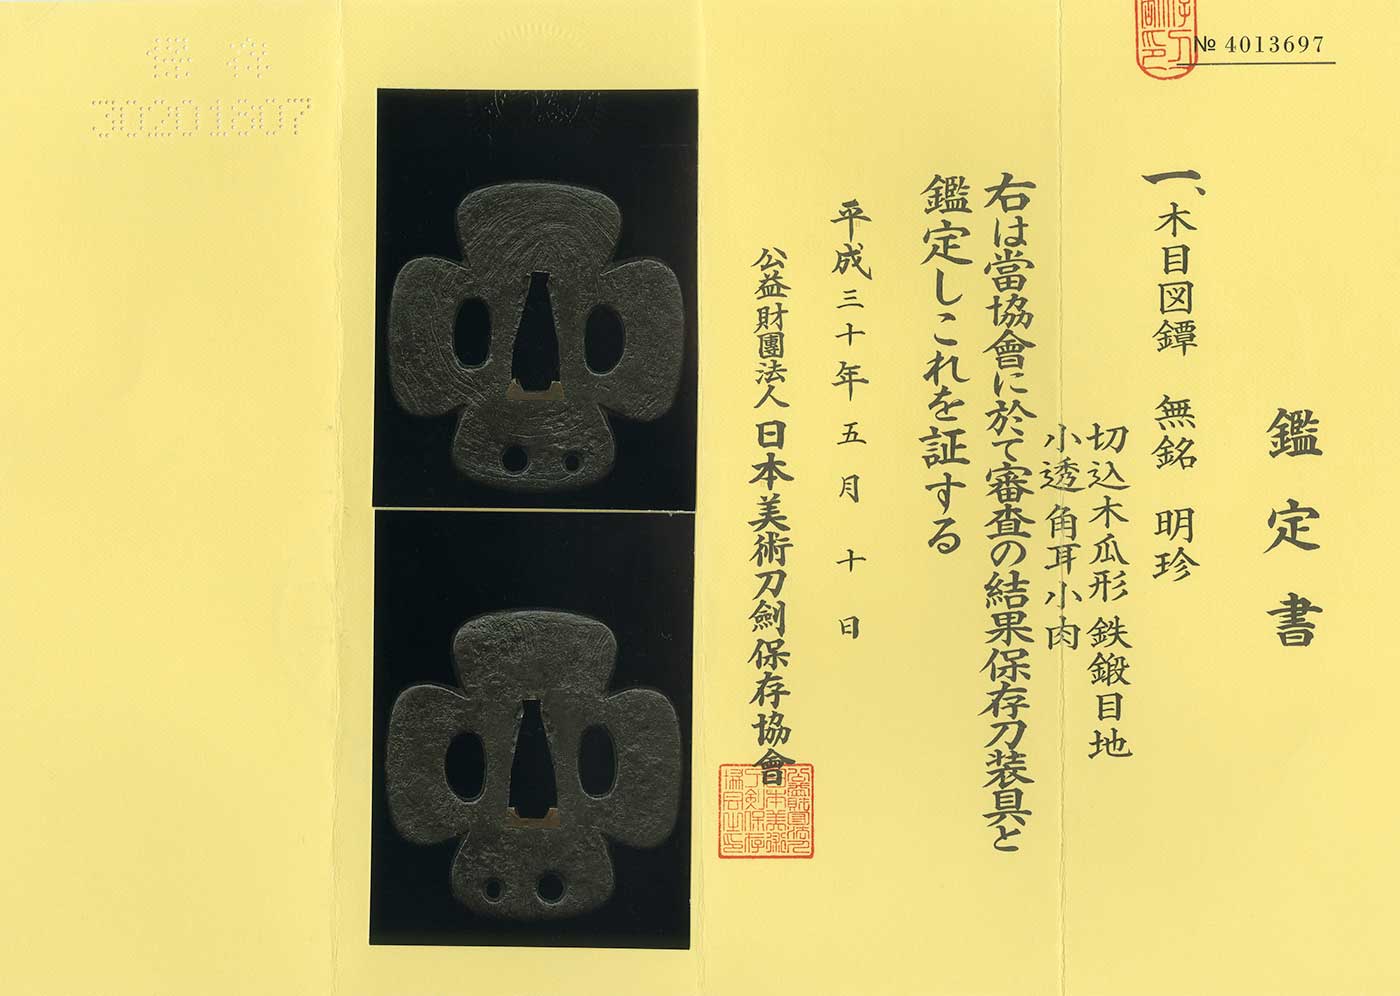 № 4013697
鑑定書
一、木目図鐔 無銘 明珍
切込木瓜形 鉄鍛目地
小透 角耳小肉
右は當協會に於て審査の結果保存刀装具と
鑑定しこれを証する
平成三十年五月十日
公益財團法人 日本美術刀劍保存協會
保存
30201807